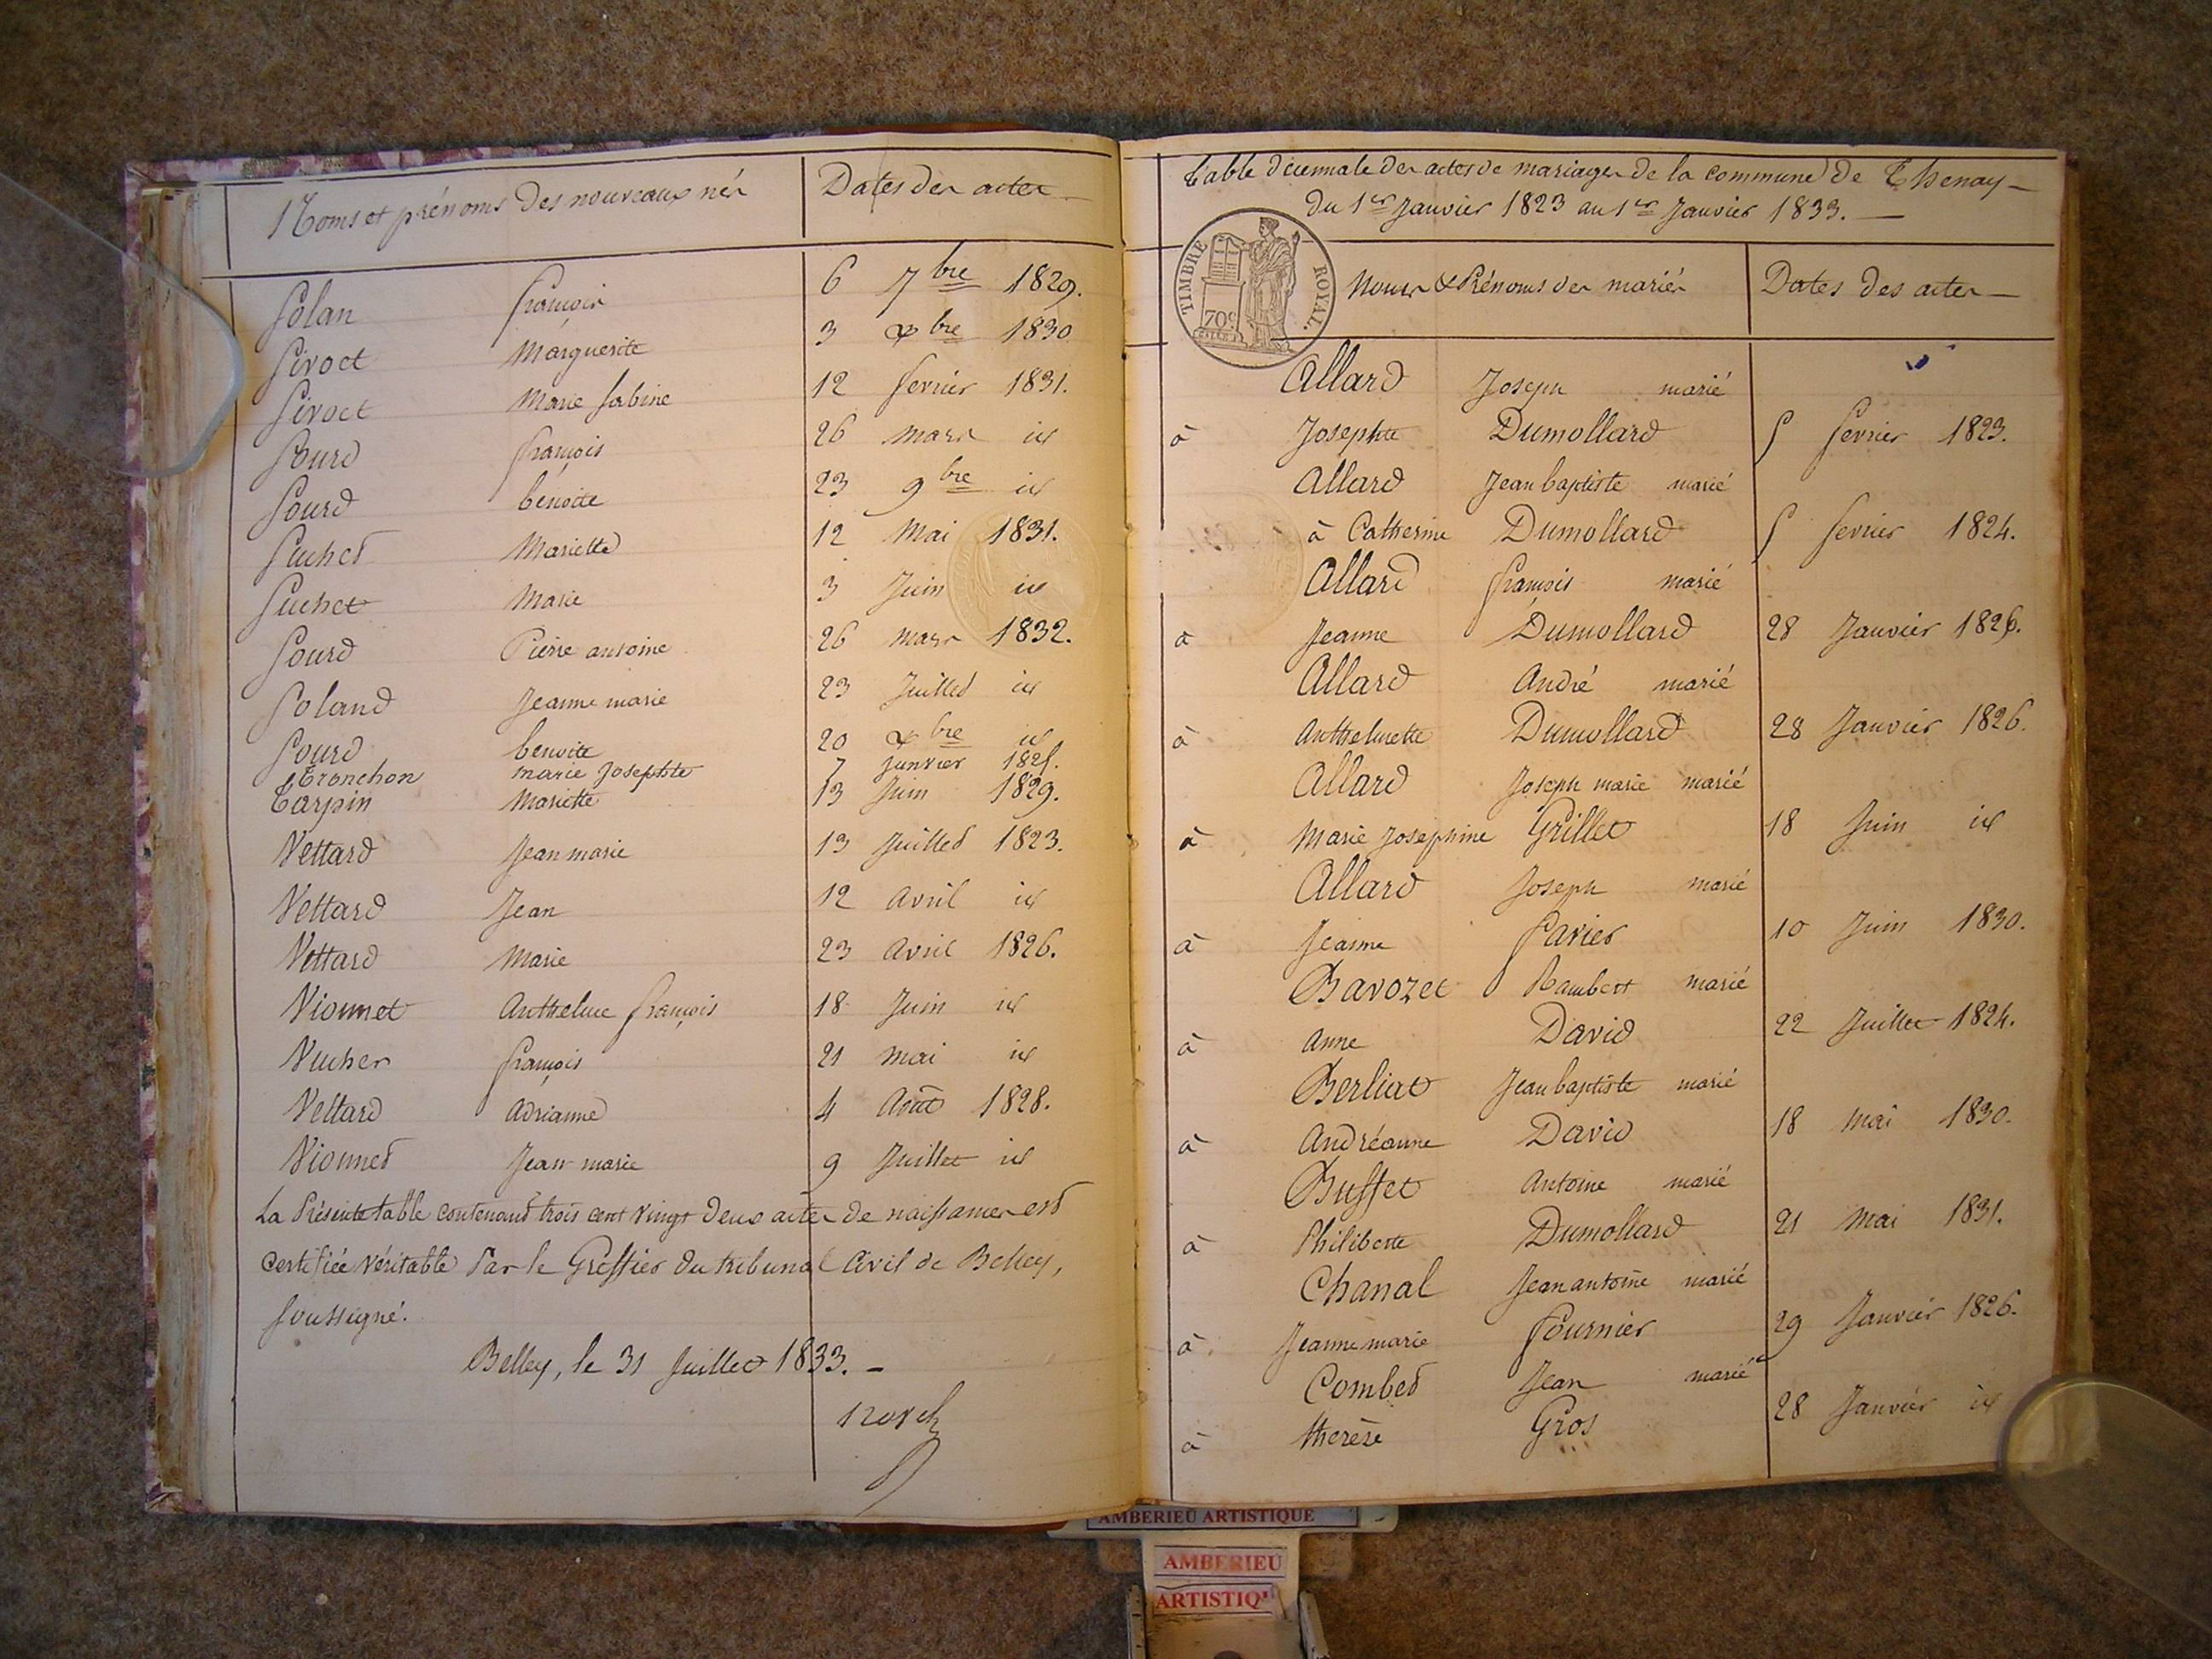 Noms et prénoms des nouveaux nés Dates des actes
Solan françois 6 7bre 1829.
Sivoct Marguerite 3 xbre 1830
Sivoct Marie Sabine 12 fevrier 1831.
Sourd françois 26 mars id
Sourd benoite 23 9bre id
Suchet Mariette 12 Mai 1831.
Suchet Marie 3 Juin id
Sourd Pierre antoine 26 mars 1832.
Soland Jeanne marie 23 Juillet id
Sourd benoite 20 xbre id
Tronchon marie Josephte 7 janvier 1825.
Tarpin Mariette 13 Juin 1829.
Vettard Jean marie 13 Juillet 1823.
Vettard Jean 12 avril id
Vettard Marie 23 avril 1826.
Vionnet Anthelme françois 18 Juin id
Vucher françois 21 mai id
Vettard Adrianne 4 Août 1828.
Vionnet Jean marie 9 Juillet id
La Présente table contenant trois cent vingt deux actes de naissances est
certifiée véritable Par le Greffier du tribunal Civil de Belley,
soussigné.
Belley, le 31 Juillet 1833. —
Table décennale des actes de mariages de la commune de Thenay —
du 1er Janvier 1823 au 1er Janvier 1833. —
TIMBRE ROYAL.
70c
Noms & Prénoms des mariés Dates des actes —
Allard Joseph marié
à Josephte Dumollard 5 fevrier 1823.
Allard Jean baptiste marié
à Catherine Dumollard 5 fevrier 1824.
Allard françois marié
à Jeanne Dumollard 28 Janvier 1826.
Allard André marié
à Anthelmette Dumollard 28 Janvier 1826.
Allard Joseph marie marié
à Marie Josephine Grillet 18 Juin id
Allard Joseph marié
à Jeanne Savier 10 Juin 1830.
Bavozet Rambert marié
à Anne David 22 Juillet 1824.
Berliat Jean baptiste marié
à Andréanne David 18 mai 1830.
Buffet Antoine marié
à Philiberte Dumollard 21 Mai 1831.
Chanal Jean antoine marié
à Jeanne marie Fournier 29 Janvier 1826.
Combet Jean marié
à therèse Gros 28 Janvier id
AMBERIEU ARTISTIQUE
AMBERIEU
ARTISTIQU